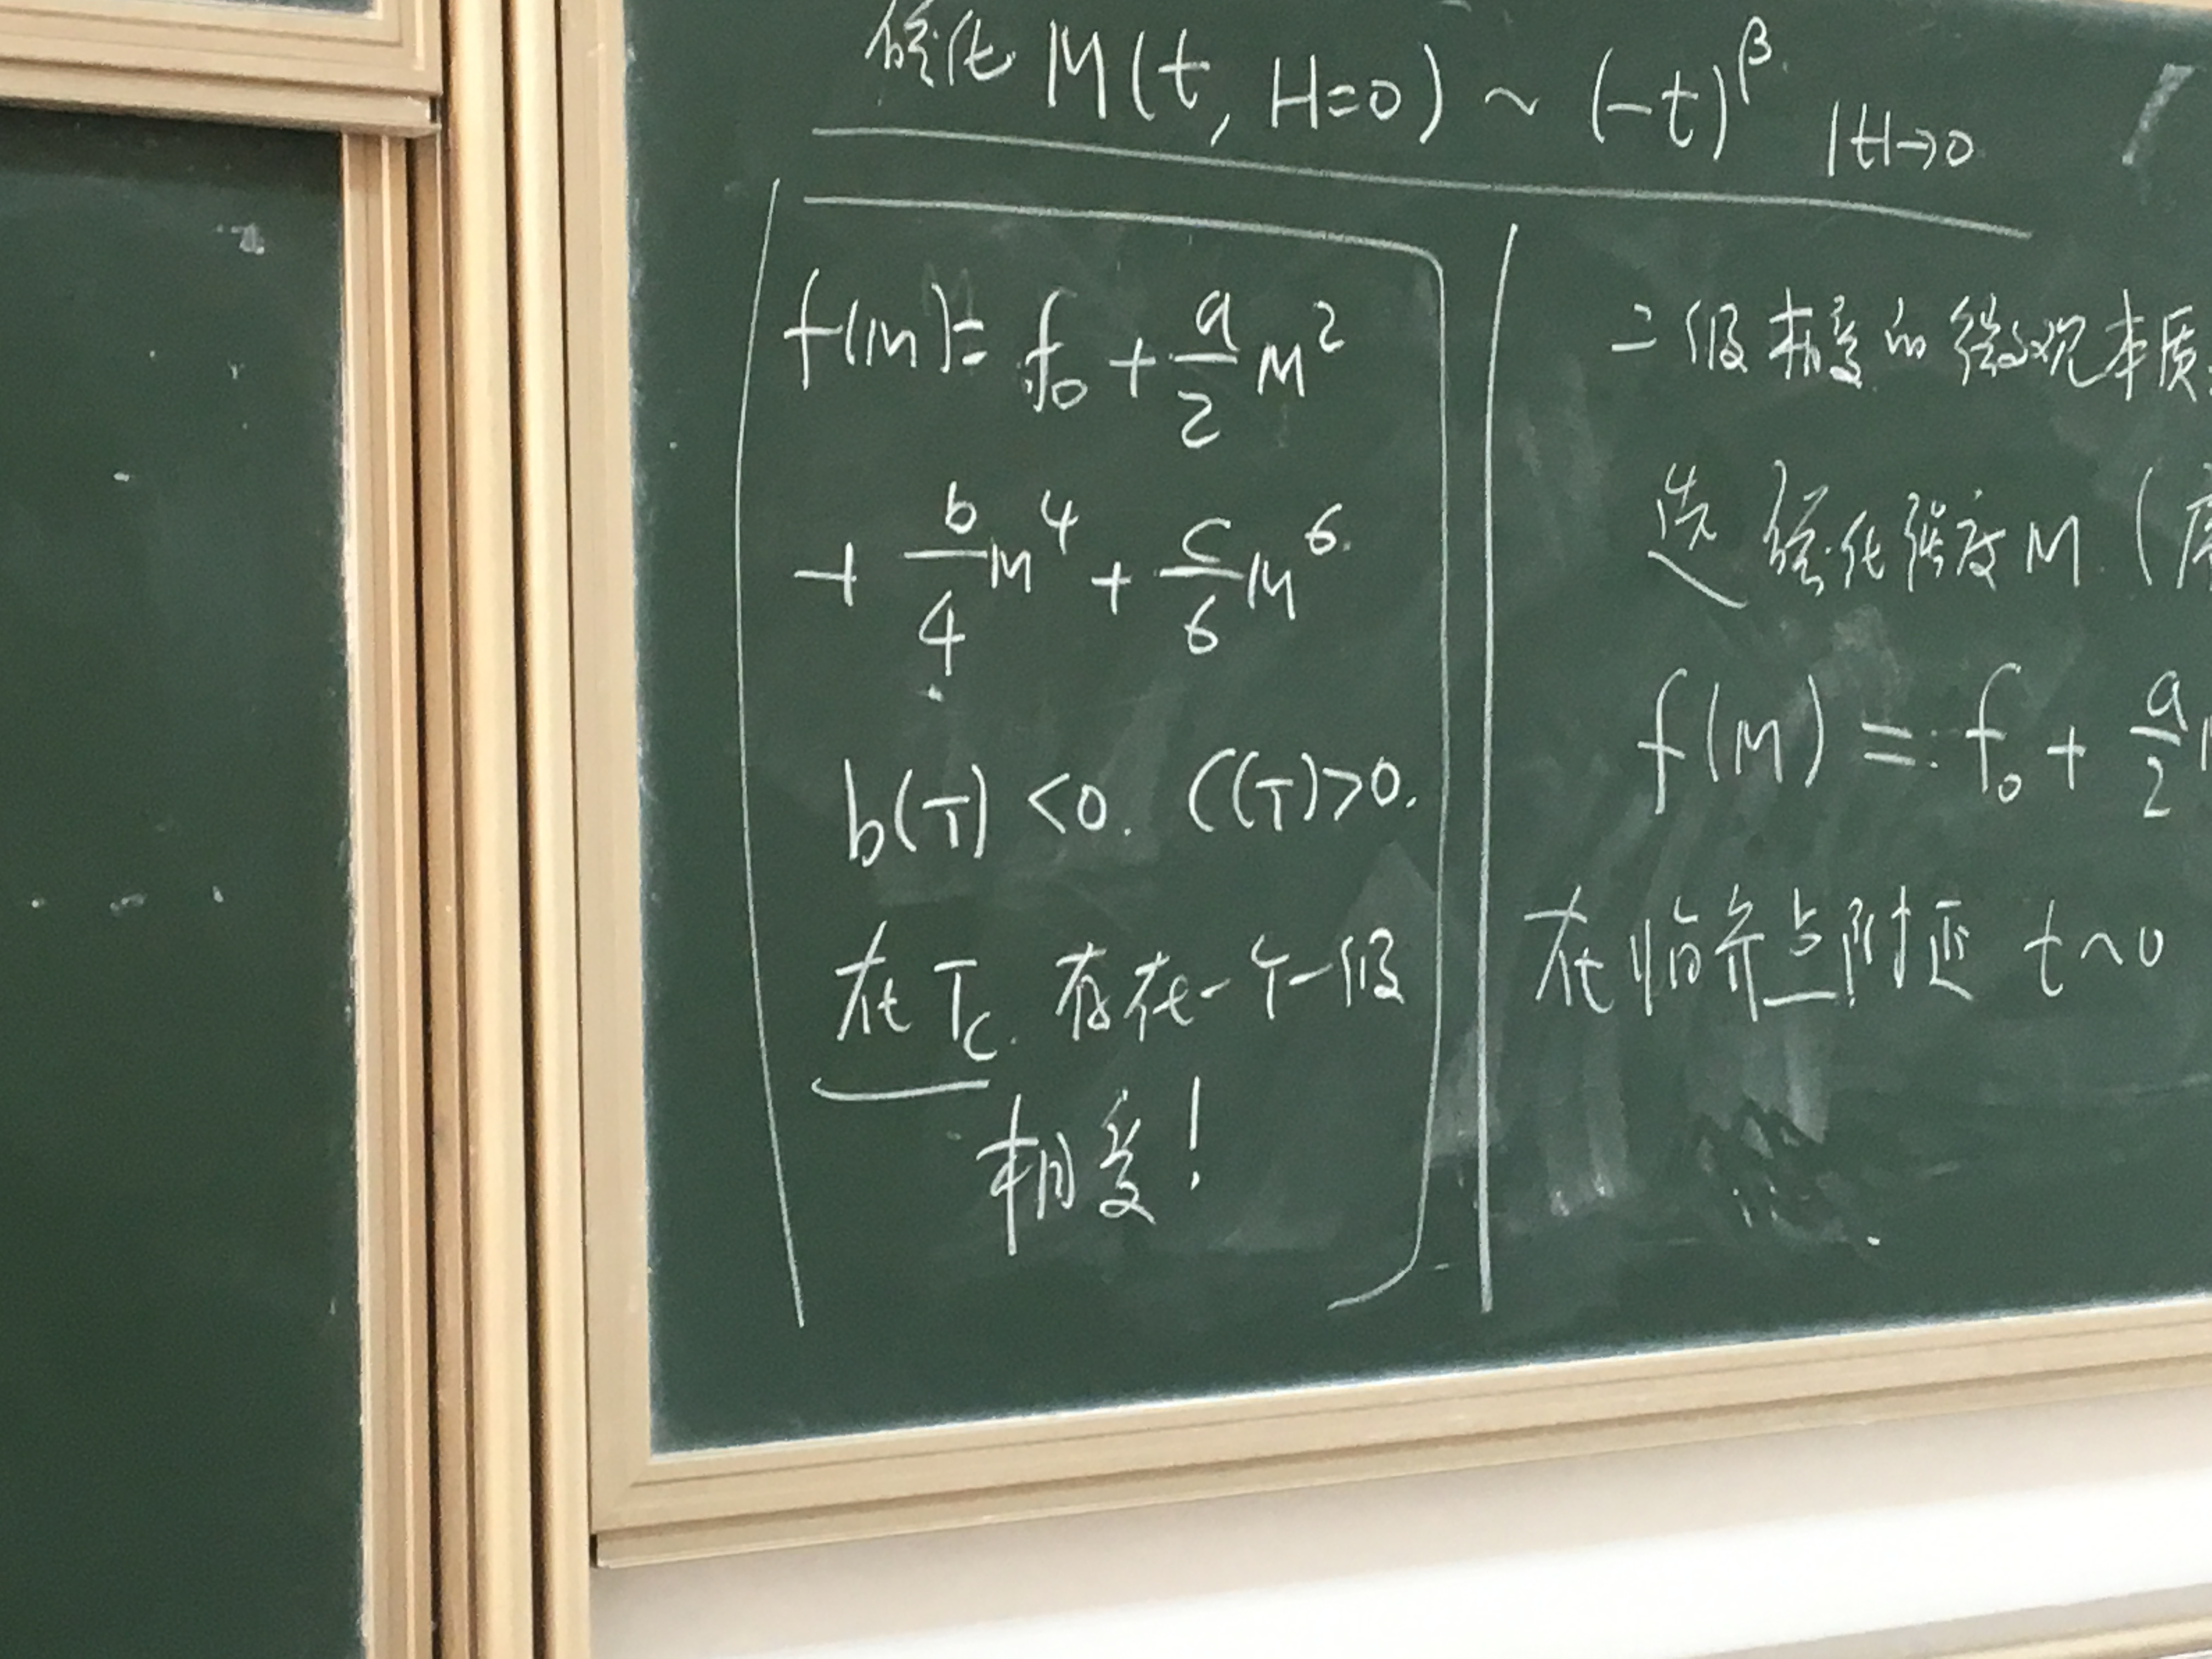 磁化 M(t, H=0) ~ (-t)^β |t|→0
f(M)= f₀ + a/2 M²
+ b/4 M⁴ + c/6 M⁶
b(T) <0. C(T)>0.
在 Tc 存在一个一级
相变!
二级相变的微观本质
选 磁化强度 M (序
f(M) = f₀ + a/2 M
在临界点附近 t~0